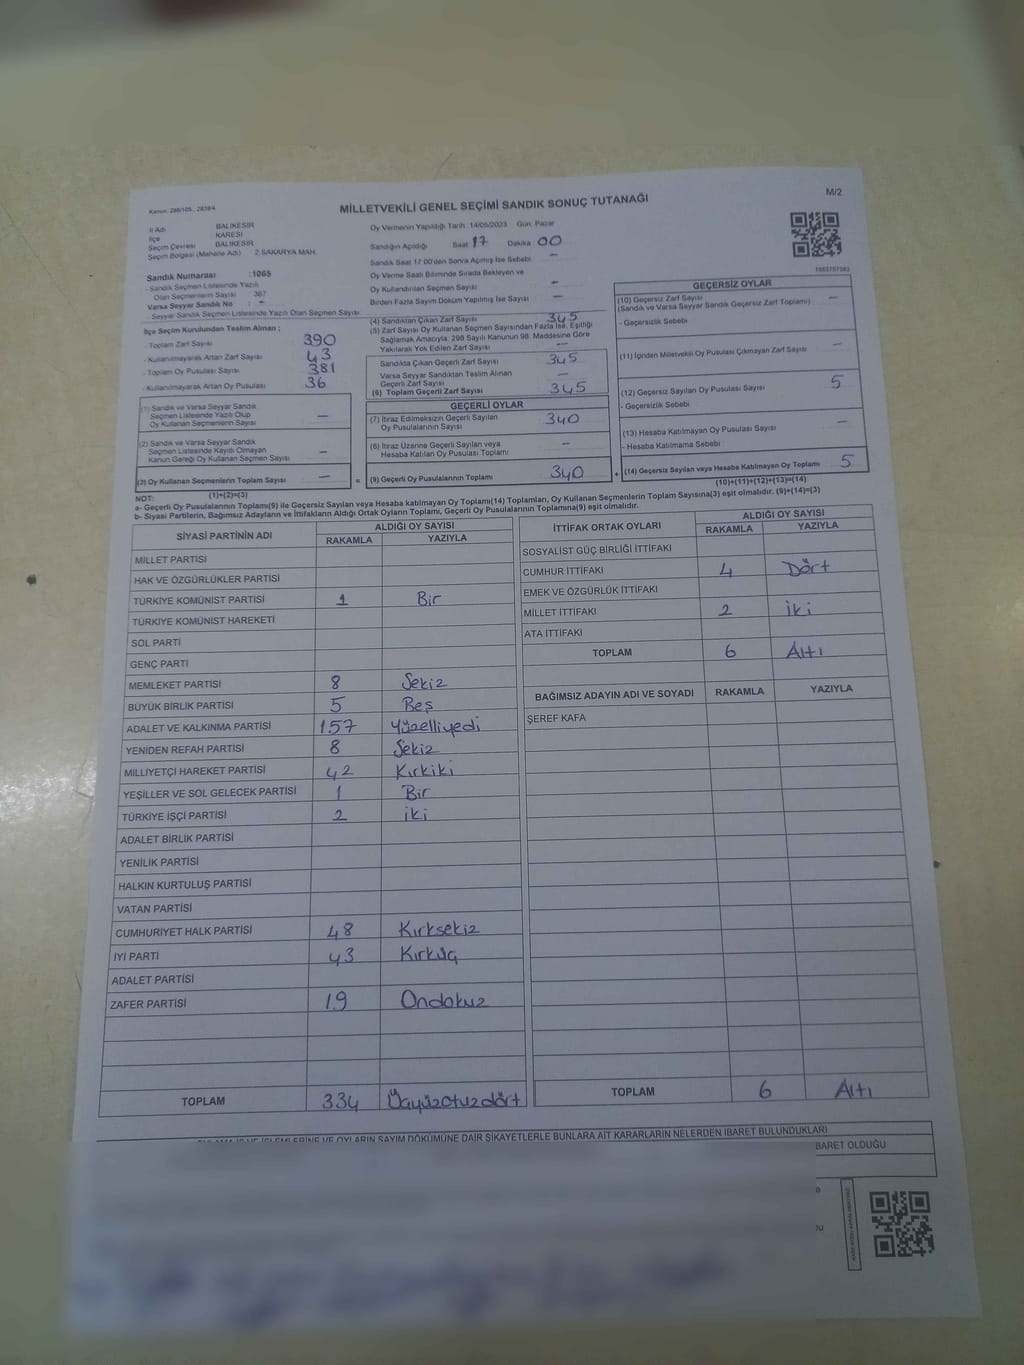 M/2
Kanun: 298/105 , 2839/4
MİLLETVEKİLİ GENEL SEÇİMİ SANDIK SONUÇ TUTANAĞI
İl Adı BALIKESİR
İlçe KARESİ
Seçim Çevresi BALIKESİR
Seçim Bölgesi (Mahalle Adı) 2 SAKARYA MAH.
Sandık Numarası :1065
- Sandık Seçmen Listesinde Yazılı
Olan Seçmenlerin Sayısı 387
Varsa Seyyar Sandık No : -
Seyyar Sandık Seçmen Listesinde Yazılı Olan Seçmen Sayısı
İlçe Seçim Kurulundan Teslim Alınan ;
- Toplam Zarf Sayısı 390
- Kullanılmayarak Artan Zarf Sayısı 43
- Toplam Oy Pusulası Sayısı 381
- Kullanılmayarak Artan Oy Pusulası 36
(1) Sandık ve Varsa Seyyar Sandık
Seçmen Listesinde Yazılı Olup
Oy Kullanan Seçmen Sayısı —
(2) Sandık ve Varsa Seyyar Sandık
Seçmen Listesinde Kayıtlı Olmayan
Kanun Gereği Oy Kullanan Seçmen Sayısı —
(3) Oy Kullanan Seçmenlerin Toplam Sayısı —
(1)+(2)=(3)
Oy Vermenin Yapıldığı Tarih :14/05/2023 Gün: Pazar
Sandığın Açıldığı Saat 17 Dakika 00
Sandık Saat 17:00'den Sonra Açılmış İse Sebebi —
Oy Verme Saati Bitiminde Sırada Bekleyen ve
Oy Kullandırılan Seçmen Sayısı —
Birden Fazla Sayım Döküm Yapılmış İse Sayısı —
(4) Sandıktan Çıkan Zarf Sayısı 345
(5) Zarf Sayısı Oy Kullanan Seçmen Sayısından Fazla İse, Eşitliği
Sağlamak Amacıyla, 298 Sayılı Kanunun 98. Maddesine Göre
Yakılarak Yok Edilen Zarf Sayısı —
Sandıkta Çıkan Geçerli Zarf Sayısı 345
Varsa Seyyar Sandıktan Teslim Alınan
Geçerli Zarf Sayısı —
(6) Toplam Geçerli Zarf Sayısı 345
GEÇERLİ OYLAR
(7) İtiraz Edilmeksizin Geçerli Sayılan
Oy Pusulalarının Sayısı 340
(8) İtiraz Üzerine Geçerli Sayılan veya
Hesaba Katılan Oy Pusulası Toplamı —
= (9) Geçerli Oy Pusulalarının Toplamı 340 +
GEÇERSİZ OYLAR
(10) Geçersiz Zarf Sayısı
(Sandık ve Varsa Seyyar Sandık Geçersiz Zarf Toplamı) —
- Geçersizlik Sebebi
(11) İçinden Milletvekili Oy Pusulası Çıkmayan Zarf Sayısı —
(12) Geçersiz Sayılan Oy Pusulası Sayısı 5
- Geçersizlik Sebebi
(13) Hesaba Katılmayan Oy Pusulası Sayısı —
- Hesaba Katılmama Sebebi
(14) Geçersiz Sayılan veya Hesaba Katılmayan Oy Toplamı 5
(10)+(11)+(12)+(13)=(14)
NOT:
a- Geçerli Oy Pusulalarının Toplamı(9) ile Geçersiz Sayılan veya Hesaba katılmayan Oy Toplamı(14) Toplamları, Oy Kullanan Seçmenlerin Toplam Sayısına(3) eşit olmalıdır. (9)+(14)=(3)
b- Siyasi Partilerin, Bağımsız Adayların ve İttifakların Aldığı Ortak Oyların Toplamı, Geçerli Oy Pusulalarının Toplamına(9) eşit olmalıdır.
SİYASİ PARTİNİN ADI ALDIĞI OY SAYISI
RAKAMLA YAZIYLA
MİLLET PARTİSİ
HAK VE ÖZGÜRLÜKLER PARTİSİ
TÜRKİYE KOMÜNİST PARTİSİ 1 Bir
TÜRKİYE KOMÜNİST HAREKETİ
SOL PARTİ
GENÇ PARTİ
MEMLEKET PARTİSİ 8 Sekiz
BÜYÜK BİRLİK PARTİSİ 5 Beş
ADALET VE KALKINMA PARTİSİ 157 Yüzelliyedi
YENİDEN REFAH PARTİSİ 8 Sekiz
MİLLİYETÇİ HAREKET PARTİSİ 42 Kırkiki
YEŞİLLER VE SOL GELECEK PARTİSİ 1 Bir
TÜRKİYE İŞÇİ PARTİSİ 2 iki
ADALET BİRLİK PARTİSİ
YENİLİK PARTİSİ
HALKIN KURTULUŞ PARTİSİ
VATAN PARTİSİ
CUMHURİYET HALK PARTİSİ 48 Kırksekiz
İYİ PARTİ 43 Kırküç
ADALET PARTİSİ
ZAFER PARTİSİ 19 Ondokuz
TOPLAM 334 Üçyüzotuzdört
İTTİFAK ORTAK OYLARI ALDIĞI OY SAYISI
RAKAMLA YAZIYLA
SOSYALİST GÜÇ BİRLİĞİ İTTİFAKI
CUMHUR İTTİFAKI 4 Dört
EMEK VE ÖZGÜRLÜK İTTİFAKI
MİLLET İTTİFAKI 2 iki
ATA İTTİFAKI
TOPLAM 6 Altı
BAĞIMSIZ ADAYIN ADI VE SOYADI RAKAMLA YAZIYLA
ŞEREF KAFA
TOPLAM 6 Altı
İŞLEMLERİNE VE OYLARIN SAYIM DÖKÜMÜNE DAİR ŞİKAYETLERLE BUNLARA AİT KARARLARIN NELERDEN İBARET BULUNDUKLARI
BARET OLDUĞU